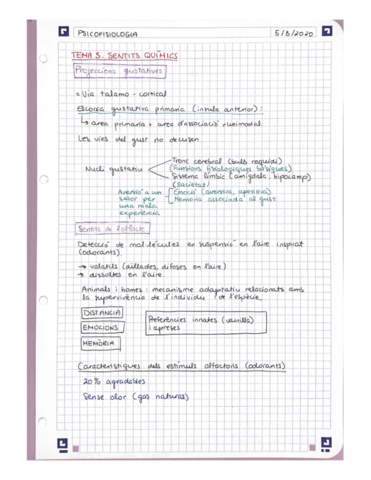 PSICOFISIOLOGIA 5/3/2020
TEMA 5. SENTITS QUÍMICS
Projeccions gustatives
Via talamo - cortical
Escorça gustativa primaria (insula anterior):
↳ area primaria + area d'associació unimodal.
Les vies del gust no decusen.
Nucli gustatiu
Tronc cerebral (bulb raquidi)
(Funcions fisiologiques bàsiques)
Sistema límbic (amígdala, hipocamp)
(Sacietat)
Aversió a un sabor per una mala experiència
Emoció (aversiva, apresia)
Memoria associada al gust
Sentits de l'olfacte
Detecció de mol·lècules en suspensió en l'aire inspirat
(odorants).
→ volatils (aillades, difoses en l'aire)
→ dissoltes en l'aire.
Animals i homes: mecanisme adaptatiu relacionats amb
la supervivència de l'individu i de l'espècie.
DISTANCIA
EMOCIONS
MEMÒRIA
Preferències innates (vainilla)
i apreses
Característiques dels estímuls olfactoris (odorants)
20% agradables
Sense olor (gas natural)